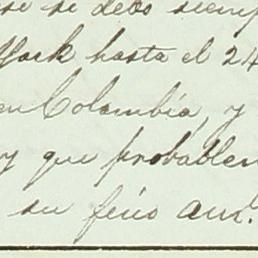 se se debo siemp
York hasta el 24
en Colombia, y
y que probablem
su feus am.